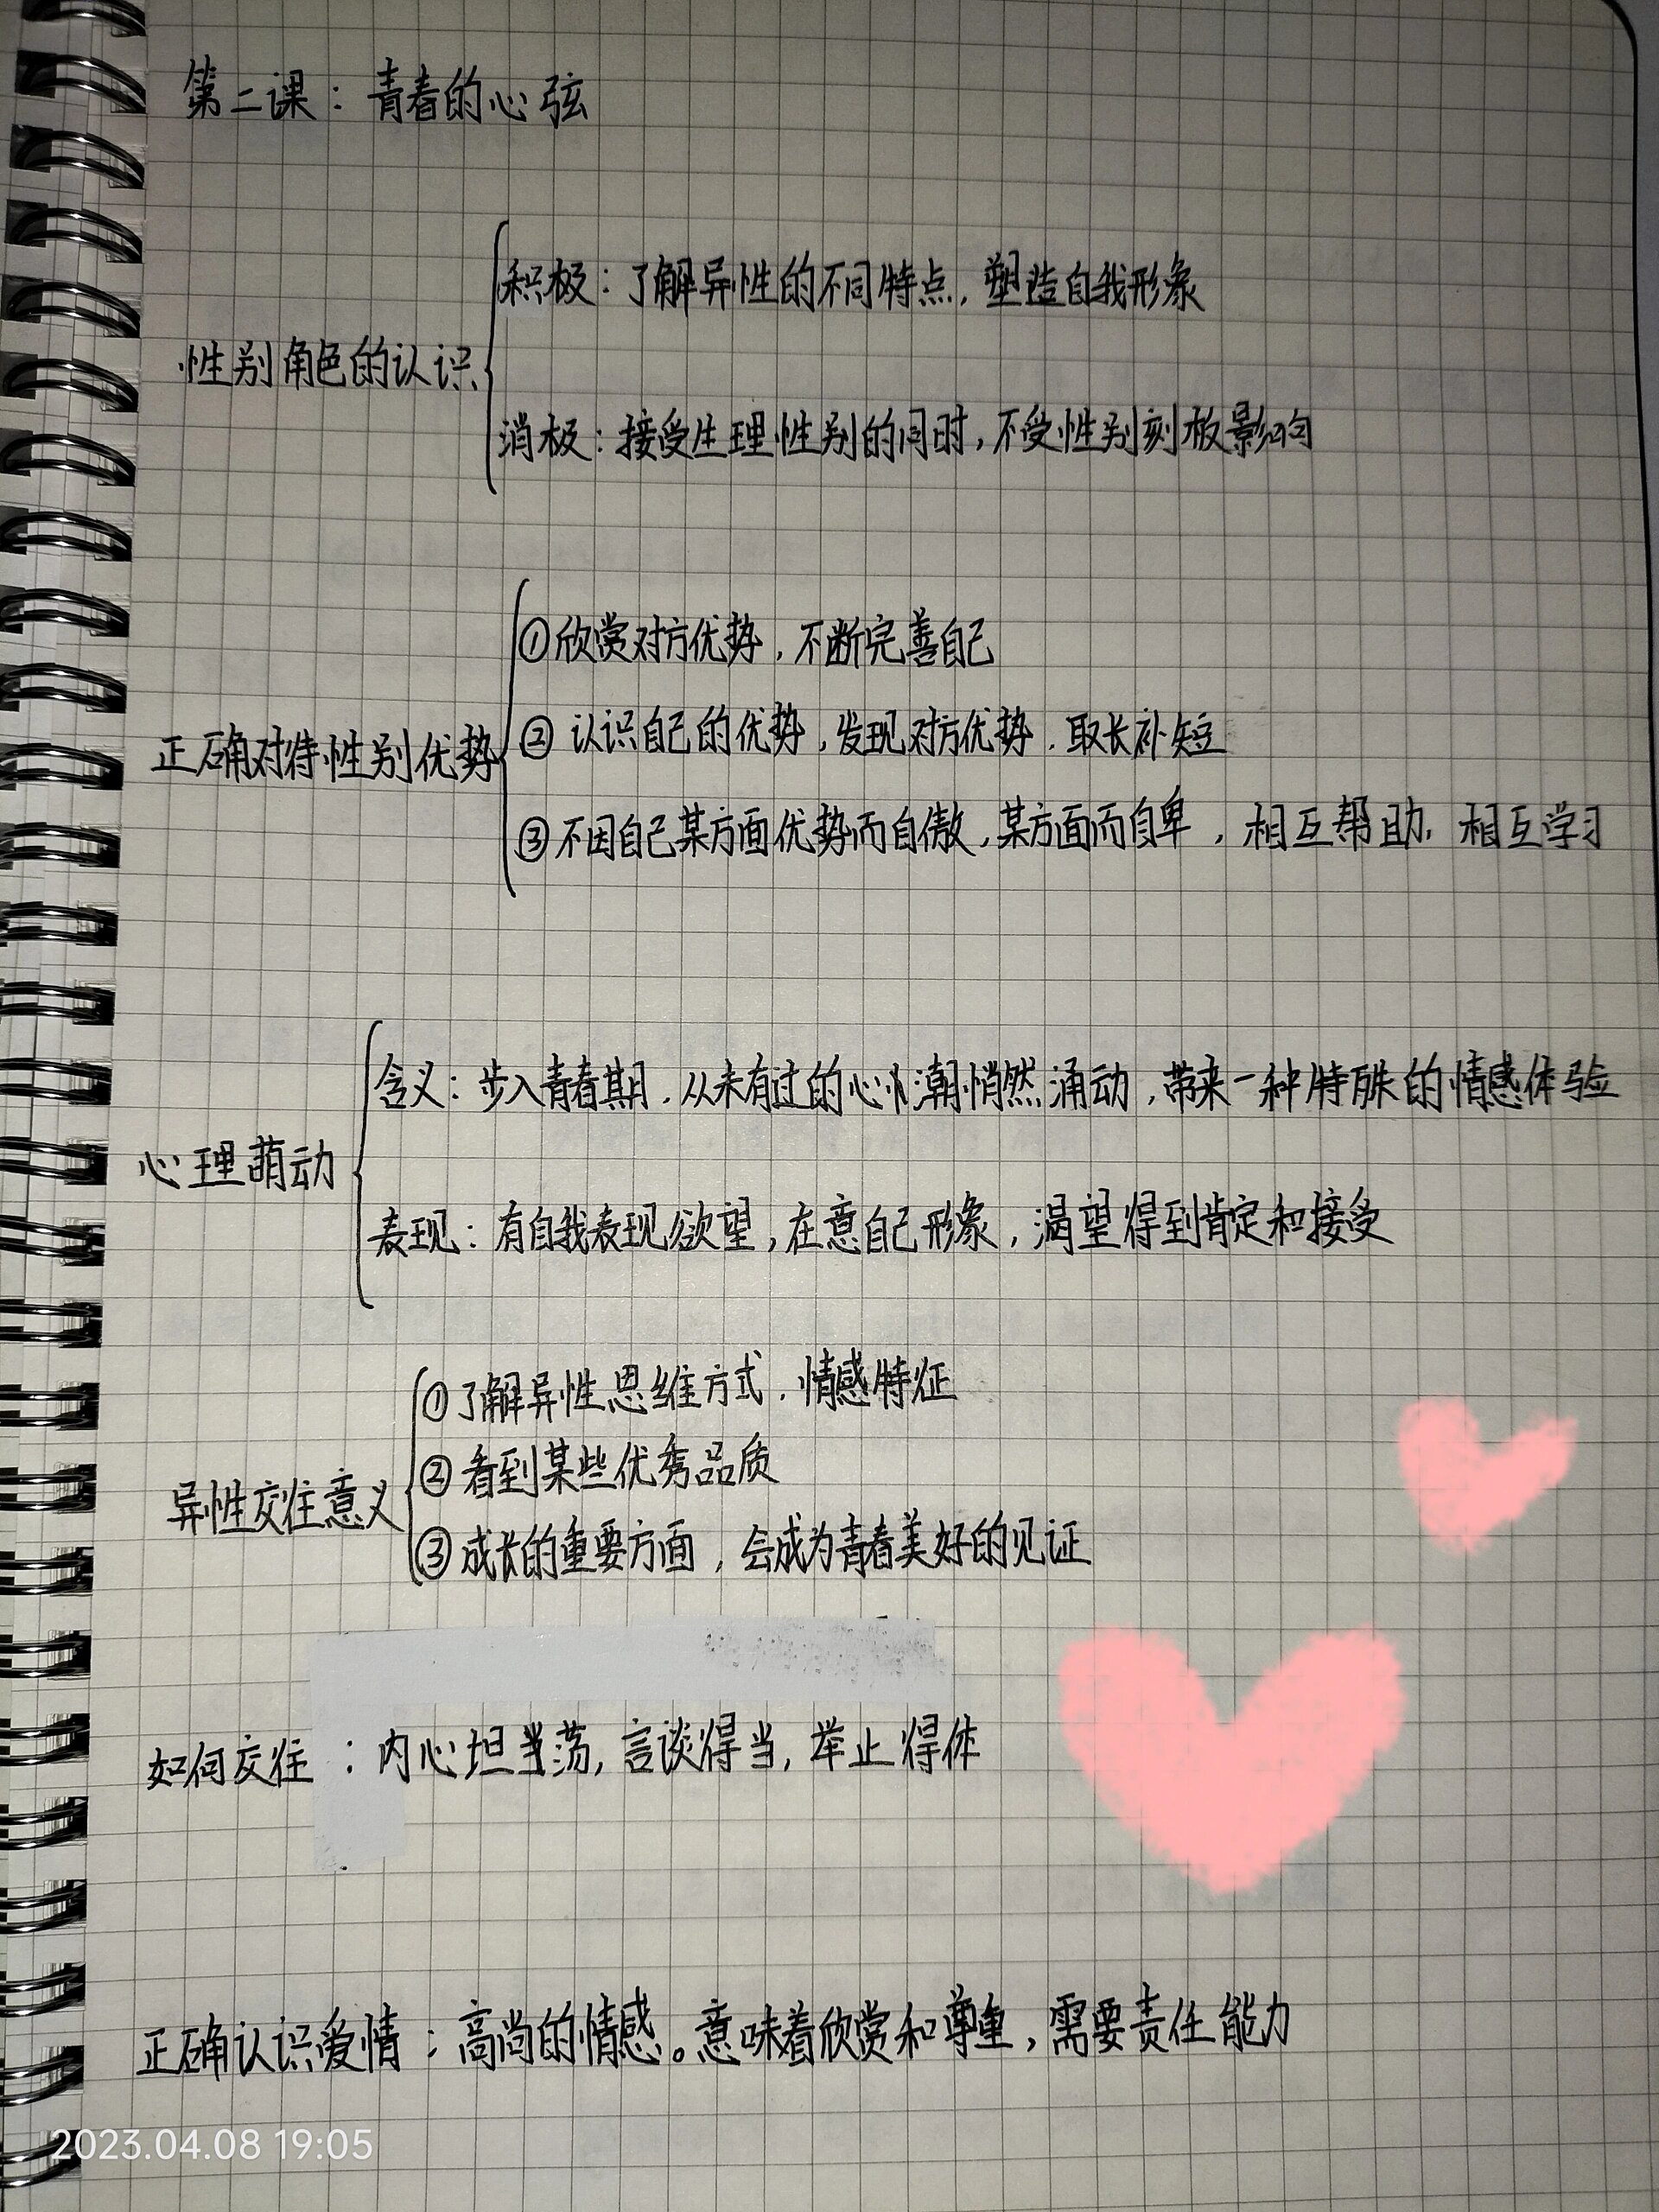 第二课：青春的心弦
积极：了解异性的不同特点，塑造自我形象
性别角色的认识
消极：接受生理性别的同时，不受性别刻板影响
①欣赏对方优势，不断完善自己
②认识自己的优势，发现对方优势，取长补短
正确对待性别优势
③不因自己某方面优势而自傲，某方面而自卑，相互帮助，相互学习
含义：步入青春期，从未有过的心潮悄然涌动，带来一种特殊的情感体验
心理萌动
表现：有自我表现欲望，在意自己形象，渴望得到肯定和接受
①了解异性思维方式，情感特征
②看到某些优秀品质
异性交往意义
③成长的重要方面，会成为青春美好的见证
如何交往：内心坦荡，言谈得当，举止得体
正确认识爱情：高尚的情感。意味着欣赏和尊重，需要责任能力
2023.04.08 19:05